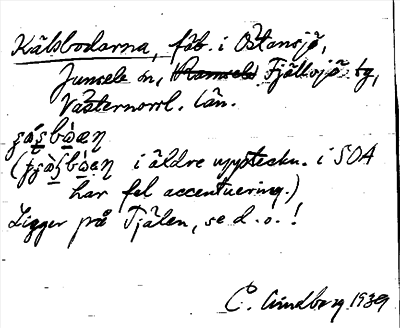 Kälsbodarna, fäb. i Östansjö,
Junsele sn, Ramsele Fjällsjö tg,
Västernorrl. län.
i äldre uppteckn. i SOA
har fel accentuering.)
Ligger på Tjälen, se d. o. !
C. Lundberg 1939